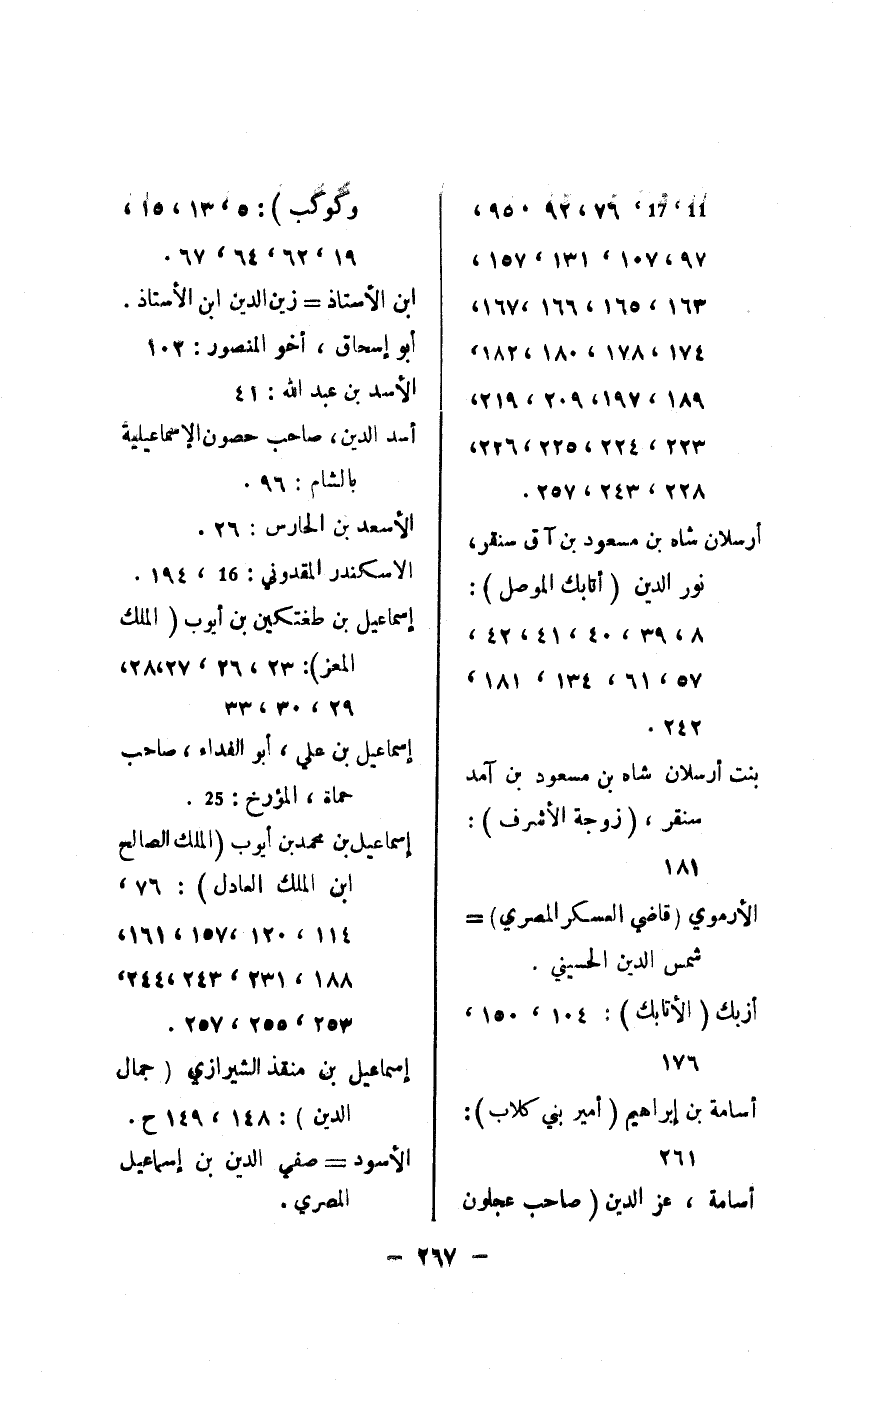 11 ، 17 ، ٧٦ ، ٩٢ ، ٩٥ ،
٩٧ ، ١٠٧ ، ١٣١ ، ١٥٧ ،
١٦٣ ، ١٦٥ ، ١٦٦ ، ١٦٧ ،
١٧٤ ، ١٧٨ ، ١٨٠ ، ١٨٢ ،
١٨٩ ، ١٩٧ ، ٢٠٩ ، ٢١٩ ،
٢٢٣ ، ٢٢٤ ، ٢٢٥ ، ٢٢٦ ،
٢٢٨ ، ٢٤٣ ، ٢٥٧ .
أرسلان شاه بن مسعود بن آق سنقر ،
نور الدين ( أتابك الموصل ) :
٨ ، ٣٩ ، ٤٠ ، ٤١ ، ٤٢ ،
٥٧ ، ٦١ ، ١٣٤ ، ١٨١ ،
٢٤٢ .
بنت أرسلان شاه بن مسعود بن آمد
سنقر ، ( زوجة الأشرف ) :
١٨١
الأرموي ( قاضي العسكر المصري ) =
شمس الدين الحسيني .
أزبك ( الأتابك ) : ١٠٤ ، ١٥٠ ،
١٧٦
أسامة بن إبراهيم ( أمير بني كلاب ) :
٢٦١
أسامة ، عز الدين ( صاحب عجلون
وكوكب ) : ٥ ، ١٣ ، ١٥ ،
١٩ ، ٦٢ ، ٦٤ ، ٦٧ .
ابن الأستاذ = زين الدين ابن الأستاذ .
أبو إسحاق ، أخو المنصور : ١٠٢
الأسد بن عبد الله : ٤١
أسد الدين ، صاحب حصون الإسماعيلية
بالشام : ٩٦ .
الأسعد بن الحارس : ٢٦ .
الاسكندر المقدوني : 16 ، ١٩٤ .
إسماعيل بن طغتكين بن أيوب ( الملك
المعز ) : ٢٣ ، ٢٦ ، ٢٧ ، ٢٨ ،
٢٩ ، ٣٠ ، ٣٣
إسماعيل بن علي ، أبو الفداء ، صاحب
حماة ، المؤرخ : 25 .
إسماعيل بن محمد بن أيوب ( الملك الصالح
ابن الملك العادل ) : ٧٦ ،
١١٤ ، ١٢٠ ، ١٥٧ ، ١٦١ ،
١٨٨ ، ٢٣١ ، ٢٤٣ ، ٢٤٤ ،
٢٥٣ ، ٢٥٥ ، ٢٥٧ .
إسماعيل بن منقذ الشيرازي ( جمال
الدين ) : ١٤٨ ، ١٤٩ ح .
الأسود = صفي الدين بن إسماعيل
المصري .
– ٢٦٧ –